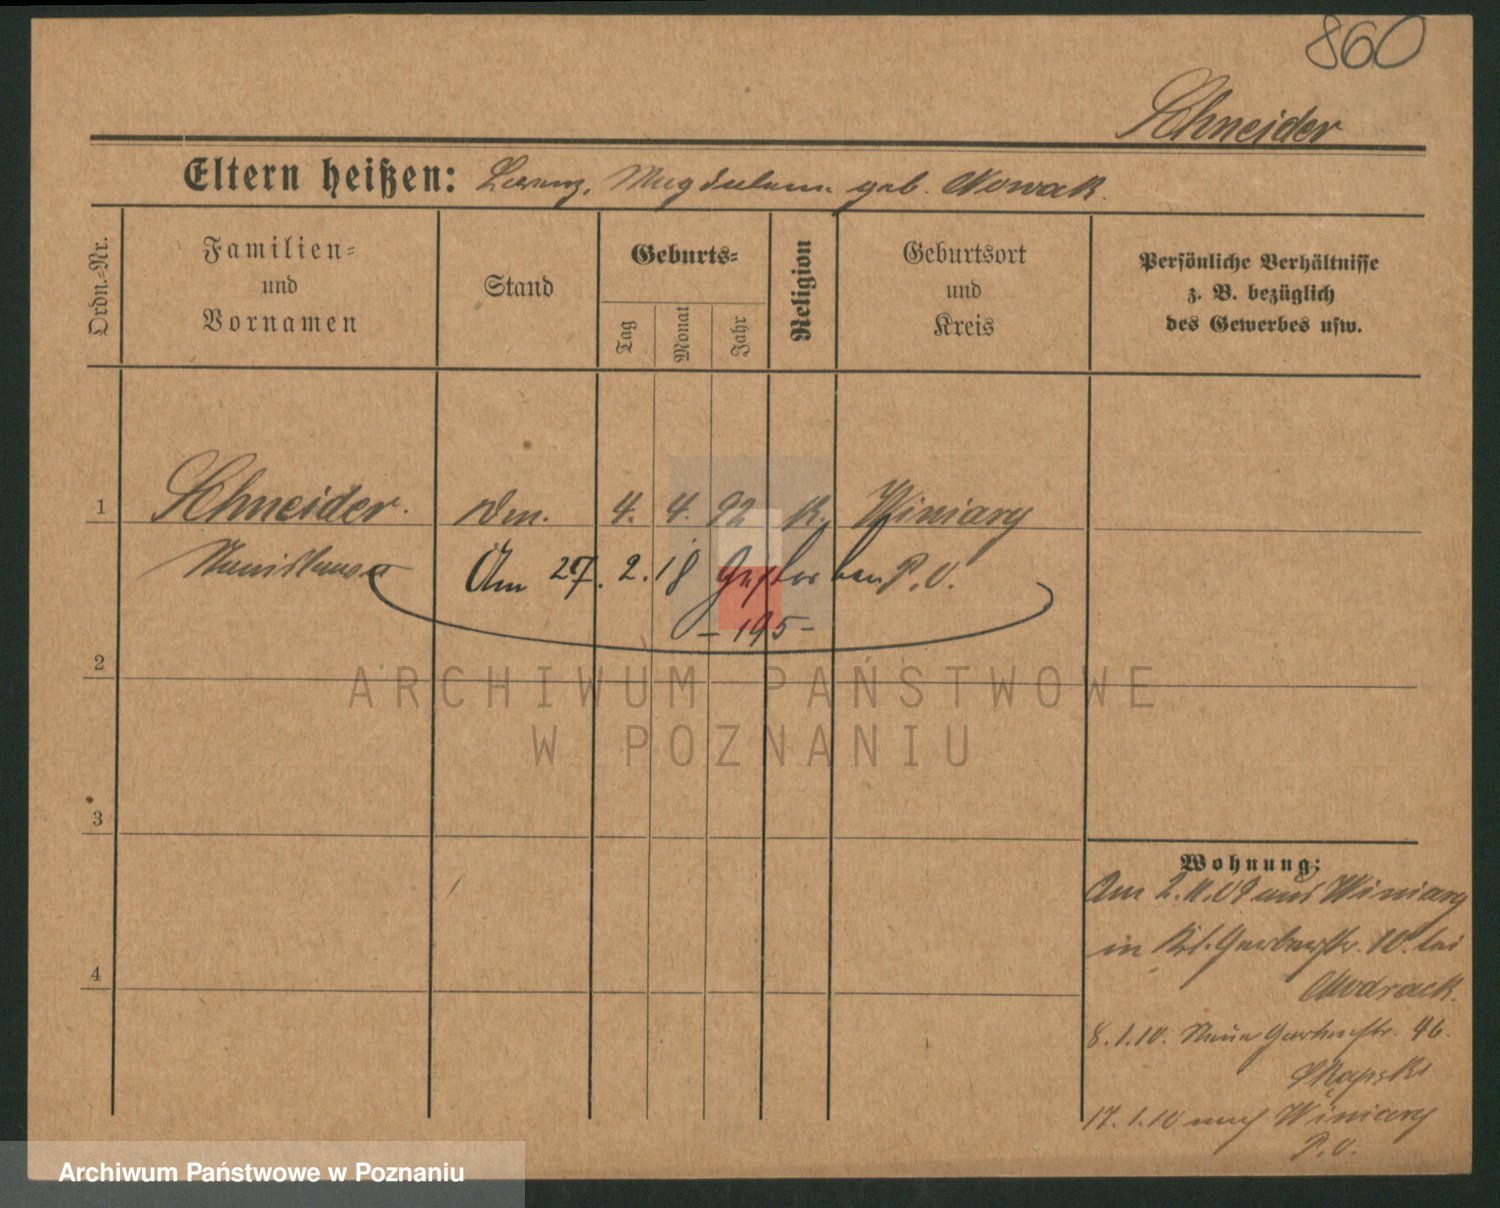 860
Schneider
Eltern heißen: Lorenz, Magdalena geb. Nowak.
Ordn.-Nr.
Familien-
und
Vornamen
Stand
Geburts-
Tag
Monat
Jahr
Religion
Geburtsort
und
Kreis
Persönliche Verhältnisse
z. B. bezüglich
des Gewerbes usw.
1 Schneider. 4. 4. 92 K. Winiary
Stanislawa Am 27. 2. 18 gestorben P. V.
- 195 -
2
ARCHIWUM PAŃSTWOWE
W POZNANIU
3
4
Wohnung:
Am 2.11.09 aus Winiary
in Gerberstr. 10. bei
Modrack.
8.1.10. Neue Gartenstr. 46.
Skapski
17.1.10 nach Winiary
P.V.
Archiwum Państwowe w Poznaniu